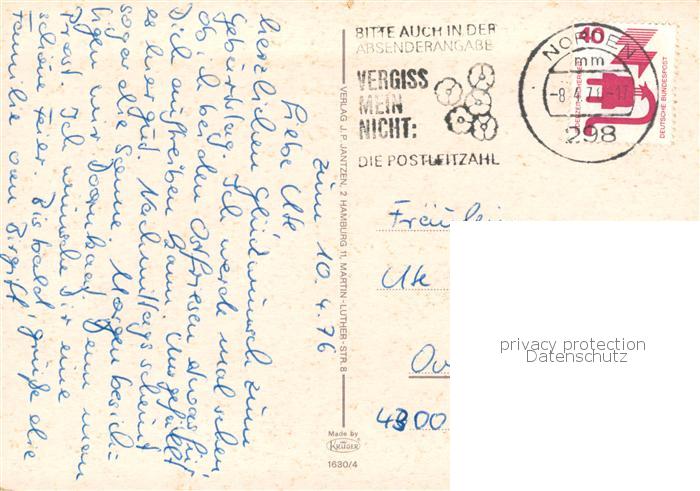 zum 10.4.76
Liebe Ute
herzlichen Glückwunsch zum
Geburtstag. Ich werde mal sehen
ob ich bei den Ostfriesen etwas für
Dich auftreiben kann. Ungefähr
es hier gut. Nachmittags scheint
sogar die Sonne. Morgen besich-
tigen wir
Prost. Ich wünsche Dir eine
schöne Feier. Bis bald grüße die
Familie von Birgitt
VERLAG J.P. JANTZEN, 2 HAMBURG 11, MARTIN-LUTHER-STR. 8
Made by
KRÜGER
1630/4
BITTE AUCH IN DER
ABSENDERANGABE
VERGISS
MEIN
NICHT:
DIE POSTLEITZAHL
NORDEN
mm
-8.4.76-17
298
40
DEUTSCHE BUNDESPOST
Fräulein
Ute
4300
privacy protection
Datenschutz